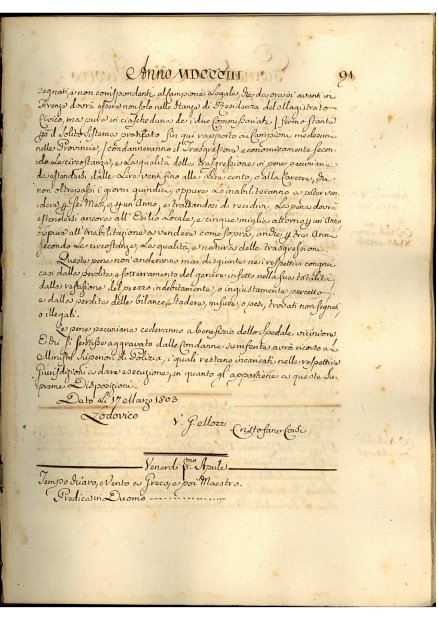 Anno MDCCCIII. 91
segnati, e non corrispondenti al Campione Legale, che da ora in avanti in
Firenze dovrà essere non solo nelle Stanze di Residenza del Magistrato
Civico, ma pure in ciascheduna de i due Commissariati / fermo stante
il solito Sistema praticato fin qui rapporto ai Campioni medesimi
nelle Provincie, / condanneranno il Trasgressore economicamente secon
do le circostanze, e la qualità della trasgressione, in pene pecuniarie
da estendersi dalle Lire venti fino alle Lire cento, o alla Carcere, che
non oltrepassi i giorni quindici, oppure lo inabiliteranno a poter ven
dere per Mesi, e un Anno, e trattandosi di recidivi, la pena dovrà
estendersi ancora all' Esilio Locale, e cinque miglia attorno per un Anno
oppure all' inabilitazione a vendere come sopra, anche per tre Anni
secondo le circostanze, la qualità, e natura delle trasgressioni.
Queste pene non anderanno mai disgiunte ne i respettivi congrui
casi dalla perdita, e sotterramento del genere infetto nella sua totalità
dalla refusione del prezzo indebitamente, o ingiustamente percetto
e dalla perdita delle bilance, Stadere, misure, o pesi, trovati non segnati
o illegali.
Le pene pecuniarie cederanno a benefizio dello Spedale viciniore
E chi si sentisse aggravato dalle condanne suriferite avrà ricorso a i
Ministri Superiori di Polizia, i quali restano incaricati nelle respettive
Giurisdizioni a dare esecuzione, in quanto gl' appartiene a queste Su
preme Disposizioni.
Dato li 17 Marzo 1803
Lodovico
V. Gellozzi
Cristofano
Venerdì pmo Aprile
Tempo chiaro, e Vento a Greco, e poi Maestro.
Predica in Duomo